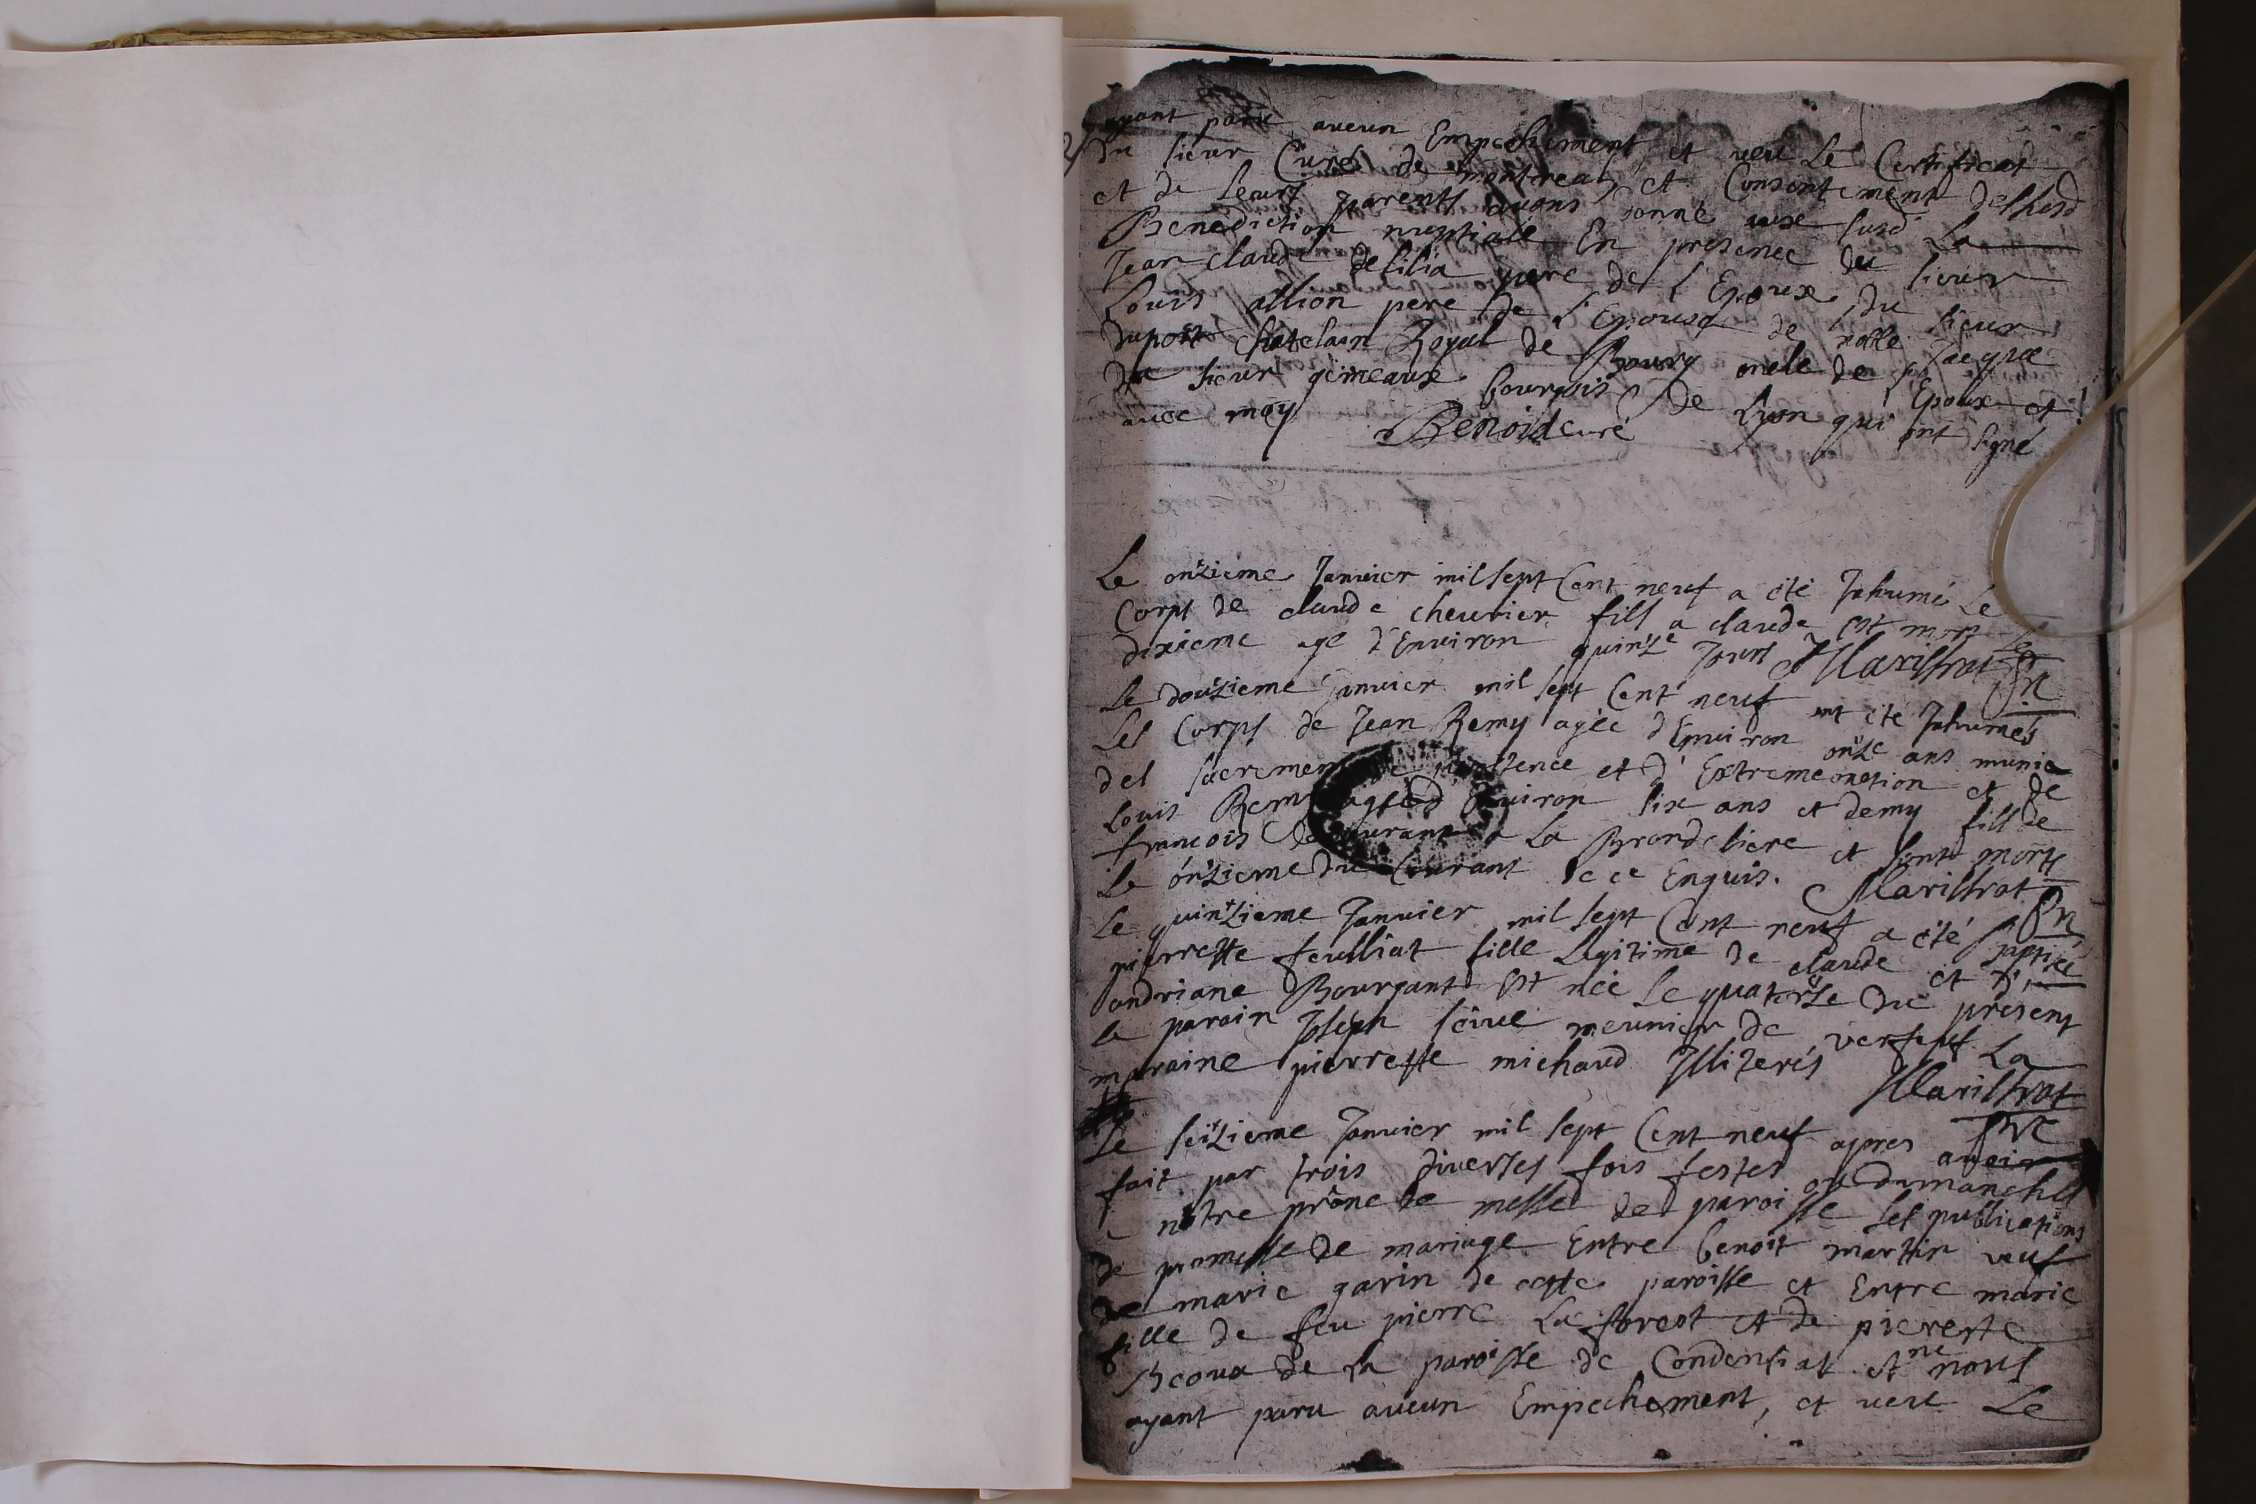 ayant paru aucun Empechement et veu Le Certificat
du sieur Curé de montreal, et Consentement desusd
et de Leurs parents avons donné aux susd La
Benediction nuptiale En presence du sieur
Jean claude de lilia pere de l'Epoux, du sieur
Louis allion pere de L'Epouse de Jacque
dupost chatelain Royal de Bourg oncle de l'Epoux et
du sieur gemeaux bourgois de Lyon qui ont signé
avec moy Benoid curé
Le onzieme Janvier mil sept Cent neuf a été Inhumé Le
Corps de claude cheurier fils a claude est mort le
dixieme age d'Environ quinze Jours Maristrat
Le douzieme Janvier mil sept Cent neuf ont été Inhumés
Les Corps de Jean Remy agée d'Environ onze ans munie
des sacrements de penitence et d'Extreme onction et de
Louis Remy agée d'Environ six ans et demy fils de
francois demeurant a La Brondeliere et sont morts
Le onzieme du Courant de ce Enquis. Maristrat
Le quinzieme Janvier mil sept Cent neuf a été baptisée
pierrette feulliat fille Legitime de claude et d'
andriane Bourgant est née Le quatorze du present
le parain Joseph seive meunier de La
maraine pierrette michaud Illiterés Maristrat
Le seizieme Janvier mil sept Cent neuf apres avoir
fait par trois diverses fois festes ou dimanches
a notre prône de messe de paroisse les publications
de promesse de mariage Entre benoit martin veuf
de marie garin de cette paroisse et Entre marie
fille de feu pierre La forest et de piereste
Beoux de la paroisse de Condensiat et ne nous
ayant paru aucun Empechement, et veu Le